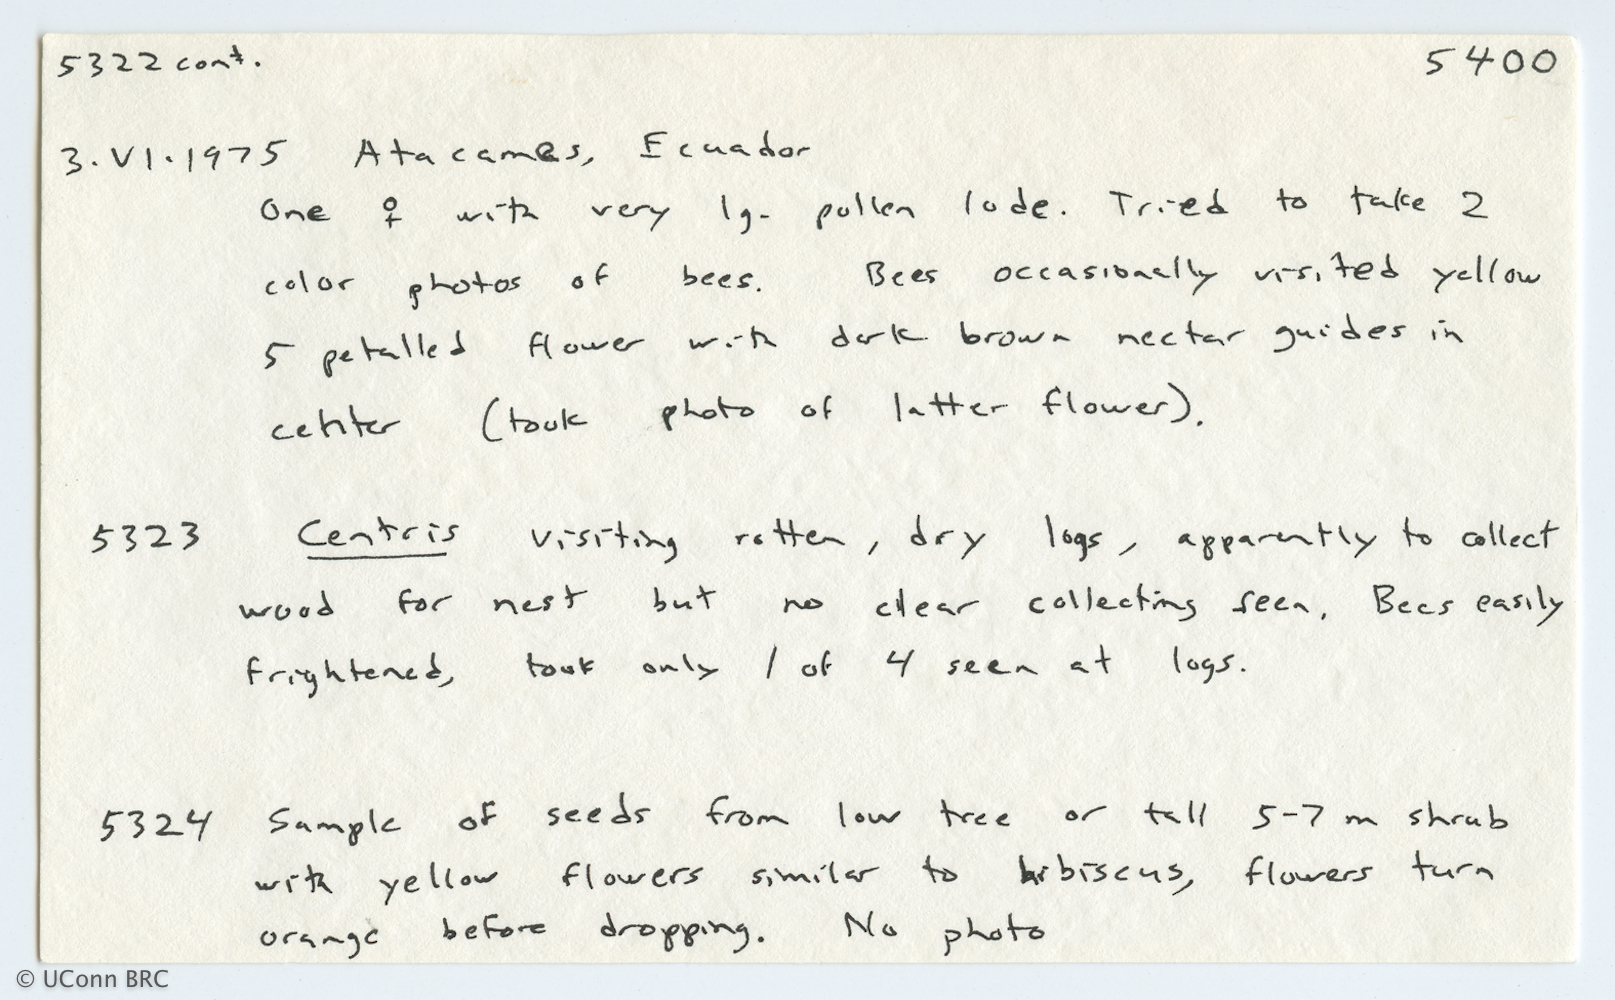 5322 cont. 5400
3.VI.1975 Atacames, Ecuador
One ♀ with very lg. pollen lode. Tried to take 2
color photos of bees. Bees occasionally visited yellow
5 petalled flower with dark brown nectar guides in
center (took photo of latter flower).
5323 Centris visiting rotten, dry logs, apparently to collect
wood for nest but no clear collecting seen. Bees easily
frightened, took only 1 of 4 seen at logs.
5324 Sample of seeds from low tree or tall 5-7 m shrub
with yellow flowers similar to hibiscus, flowers turn
orange before dropping. No photo
© UConn BRC